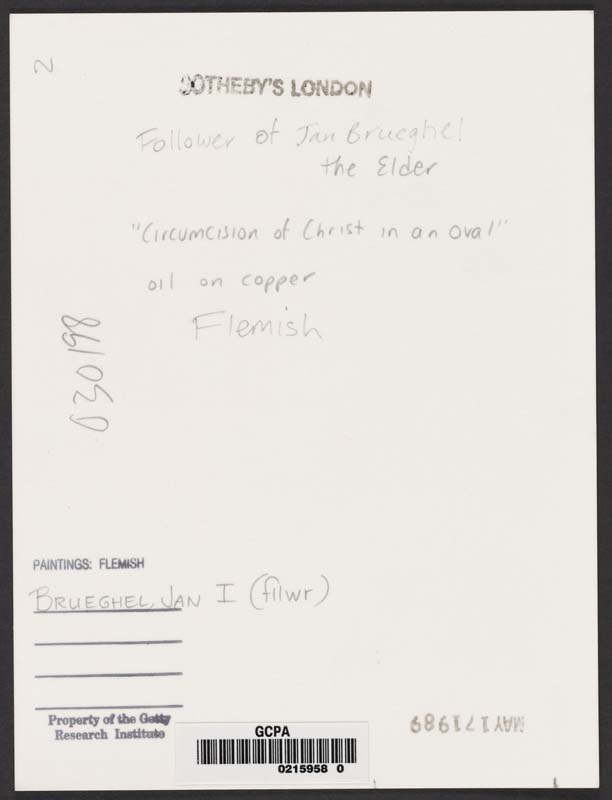 2
SOTHEBY'S LONDON
Follower of Jan Brueghel
the Elder
"Circumcision of Christ in an oval"
oil on copper
Flemish
030198
PAINTINGS: FLEMISH
BRUEGHEL, JAN I (fllwr)
Property of the Getty
Research Institute
GCPA
0215958 0
MAY 17 1989